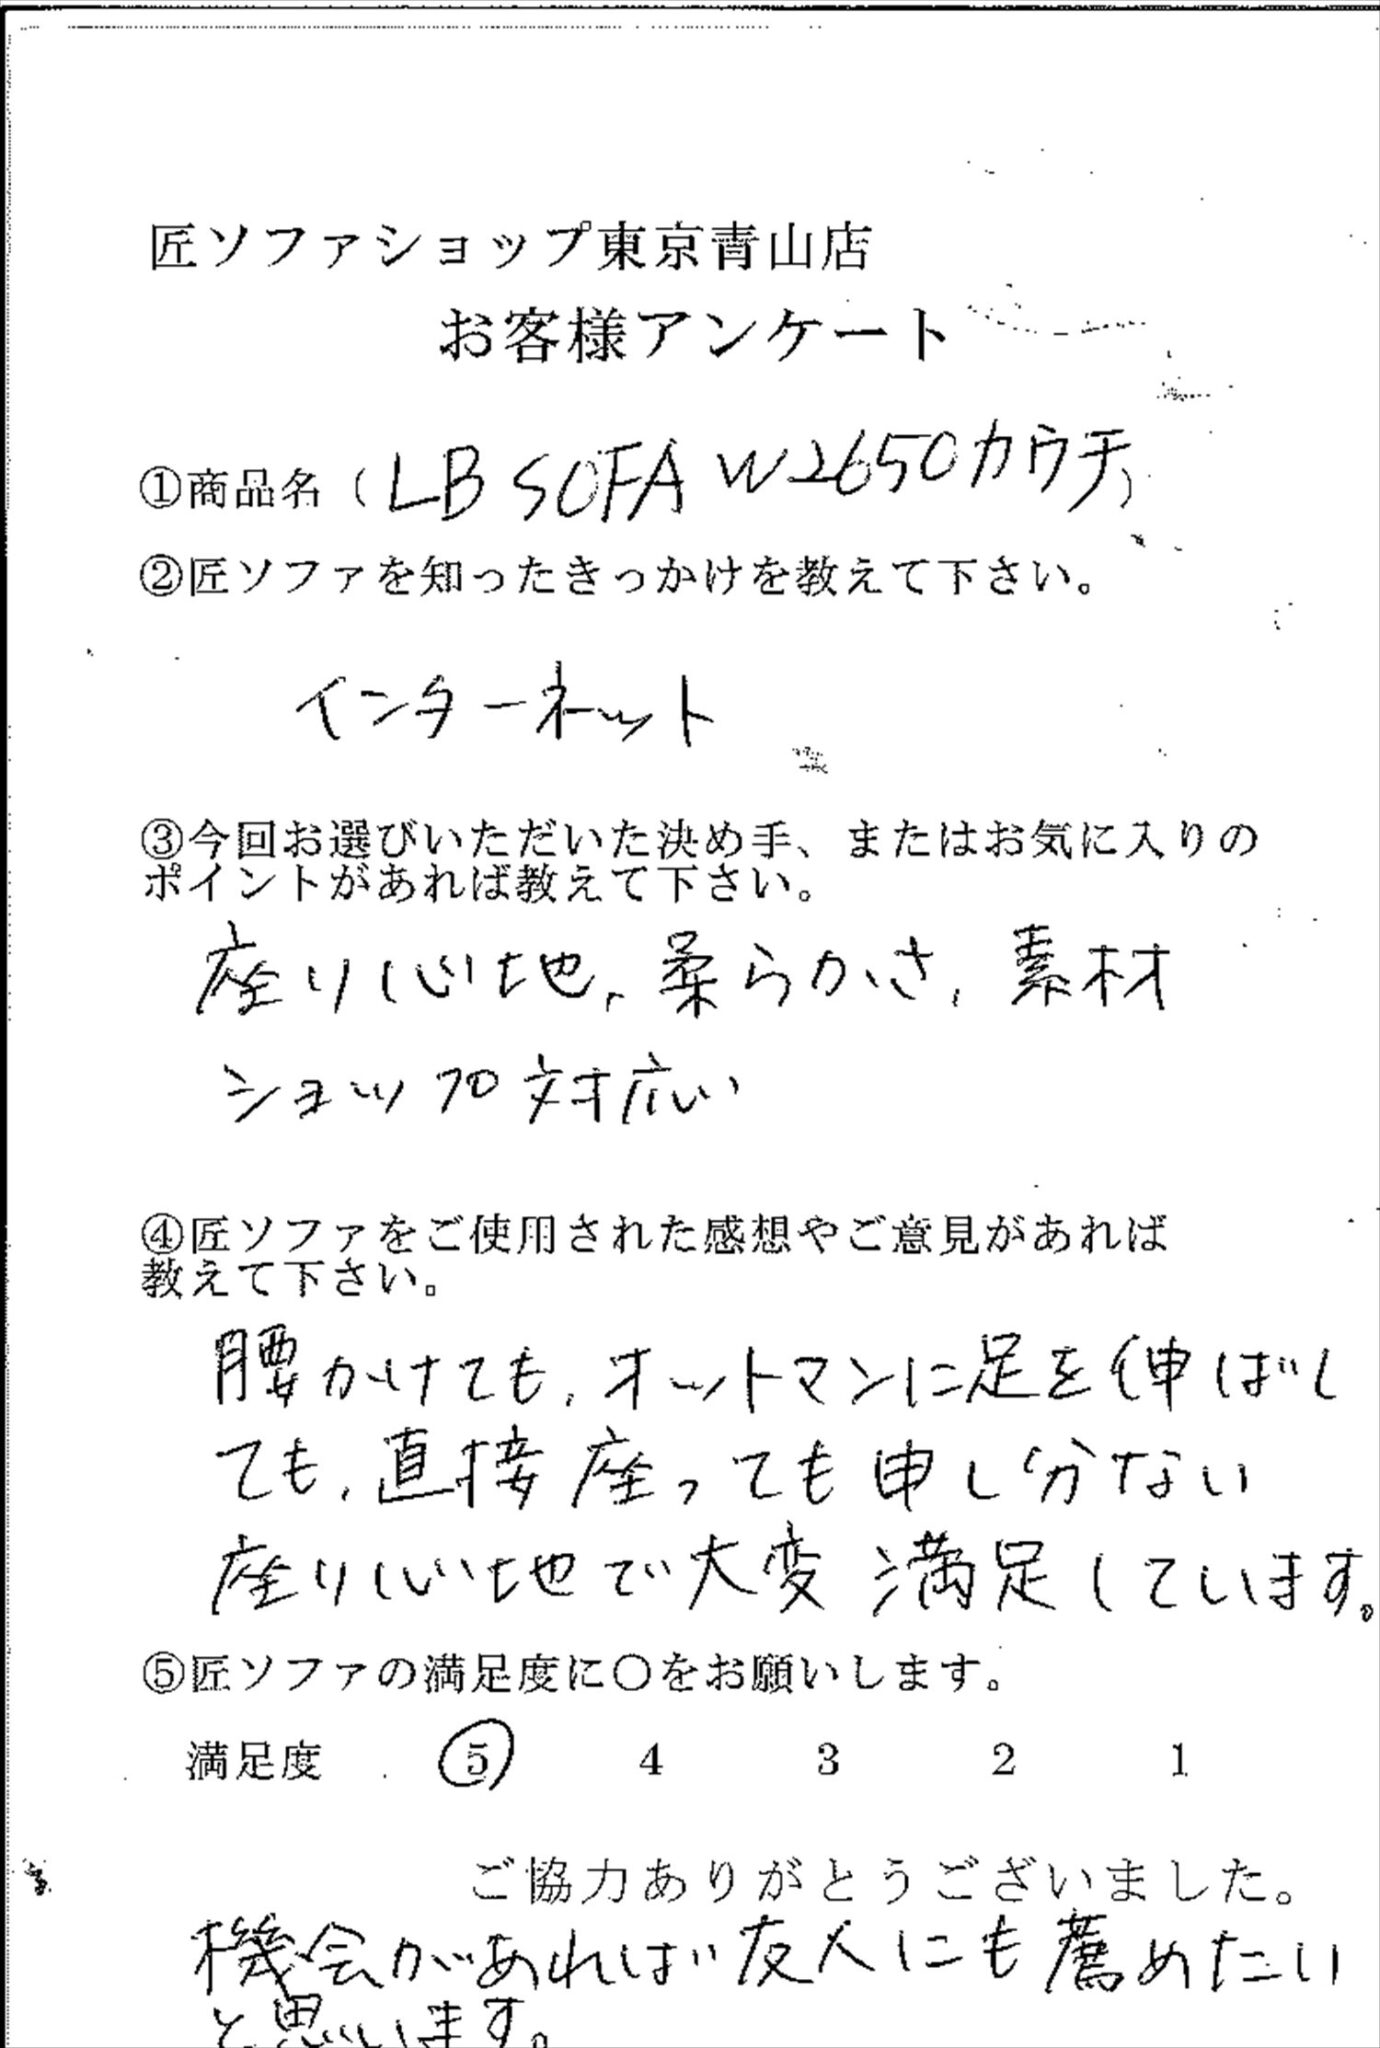 匠ソファショップ東京青山店
お客様アンケート
①商品名（LB SOFA W2650カウチ）
②匠ソファを知ったきっかけを教えて下さい。
インターネット
③今回お選びいただいた決め手、またはお気に入りの
ポイントがあれば教えて下さい。
座り心地、柔らかさ、素材
ショップ対応
④匠ソファをご使用された感想やご意見があれば
教えて下さい。
腰かけても、オットマンに足を伸ばし
ても、直接座っても申し分ない
座り心地で大変満足しています。
⑤匠ソファの満足度に〇をお願いします。
満足度 5 4 3 2 1
ご協力ありがとうございました。
機会があれば友人にも薦めたい
と思います。